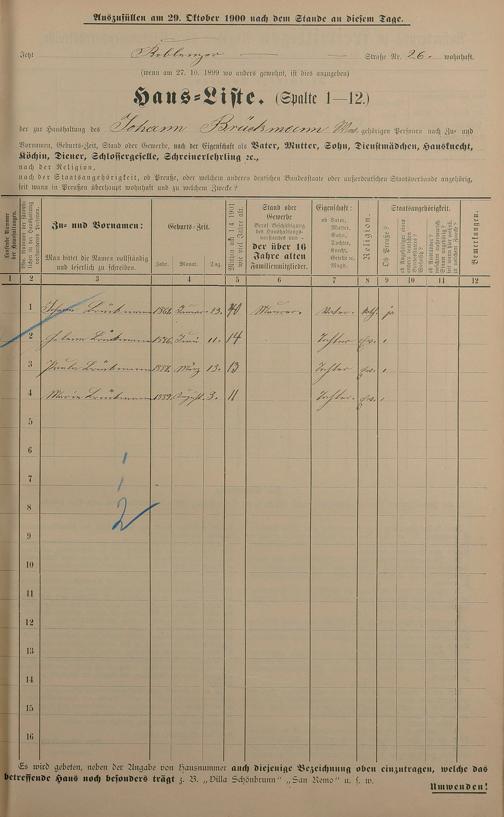 Auszufüllen am 29. Oktober 1900 nach dem Stande an diesem Tage.
Jetzt Koblenzer — — Straße Nr. 26. wohnhaft.
(wenn am 27. 10. 1899 wo anders gewohnt, ist dies anzugeben)
Haus-Liste. (Spalte 1—12.)
der zur Haushaltung des Johann Brückmann gehörigen Personen nach Zu- und
Vornamen, Geburts-Zeit, Stand oder Gewerbe, nach der Eigenschaft als Vater, Mutter, Sohn, Dienstmädchen, Hausknecht,
Köchin, Diener, Schlossergeselle, Schreinerlehrling ꝛc.,
nach der Religion,
nach der Staatsangehörigkeit, ob Preuße, oder welchem anderen deutschen Bundesstaate oder außerdeutschen Staatsverbande angehörig,
seit wann in Preußen überhaupt wohnhaft und zu welchem Zwecke?
Zu- und Vornamen:
Man bittet die Namen vollständig und leserlich zu schreiben.
Geburts-Zeit.
Jahr. Monat. Tag.
Stand oder Gewerbe
der über 16 Jahre alten Familienmitglieder.
Eigenschaft:
ob Vater, Mutter, Sohn, Tochter, Knecht, Geselle u. Magd.
Religion.
Staatsangehörigkeit.
Ob Preuße?
Bemerkungen.
1 2 3 4 5 6 7 8 9 10 11 12
1 Johann Brückmann Januar 13. 40 Maurer. Vater. kth. ja
2 Brückmann 1886 Juni 11. 14 Tochter
3 Paula Brückmann März 13. 13 Tochter
4 Maria Brückmann 1889 August 3. 11 Tochter
5
6
7
8 2
9
10
11
12
13
14
15
16
Es wird gebeten, neben der Angabe von Hausnummer auch diejenige Bezeichnung oben einzutragen, welche das
betreffende Haus noch besonders trägt z. B. „Villa Schönbrunn“ „San Remo“ u. s. w.
Umwenden!